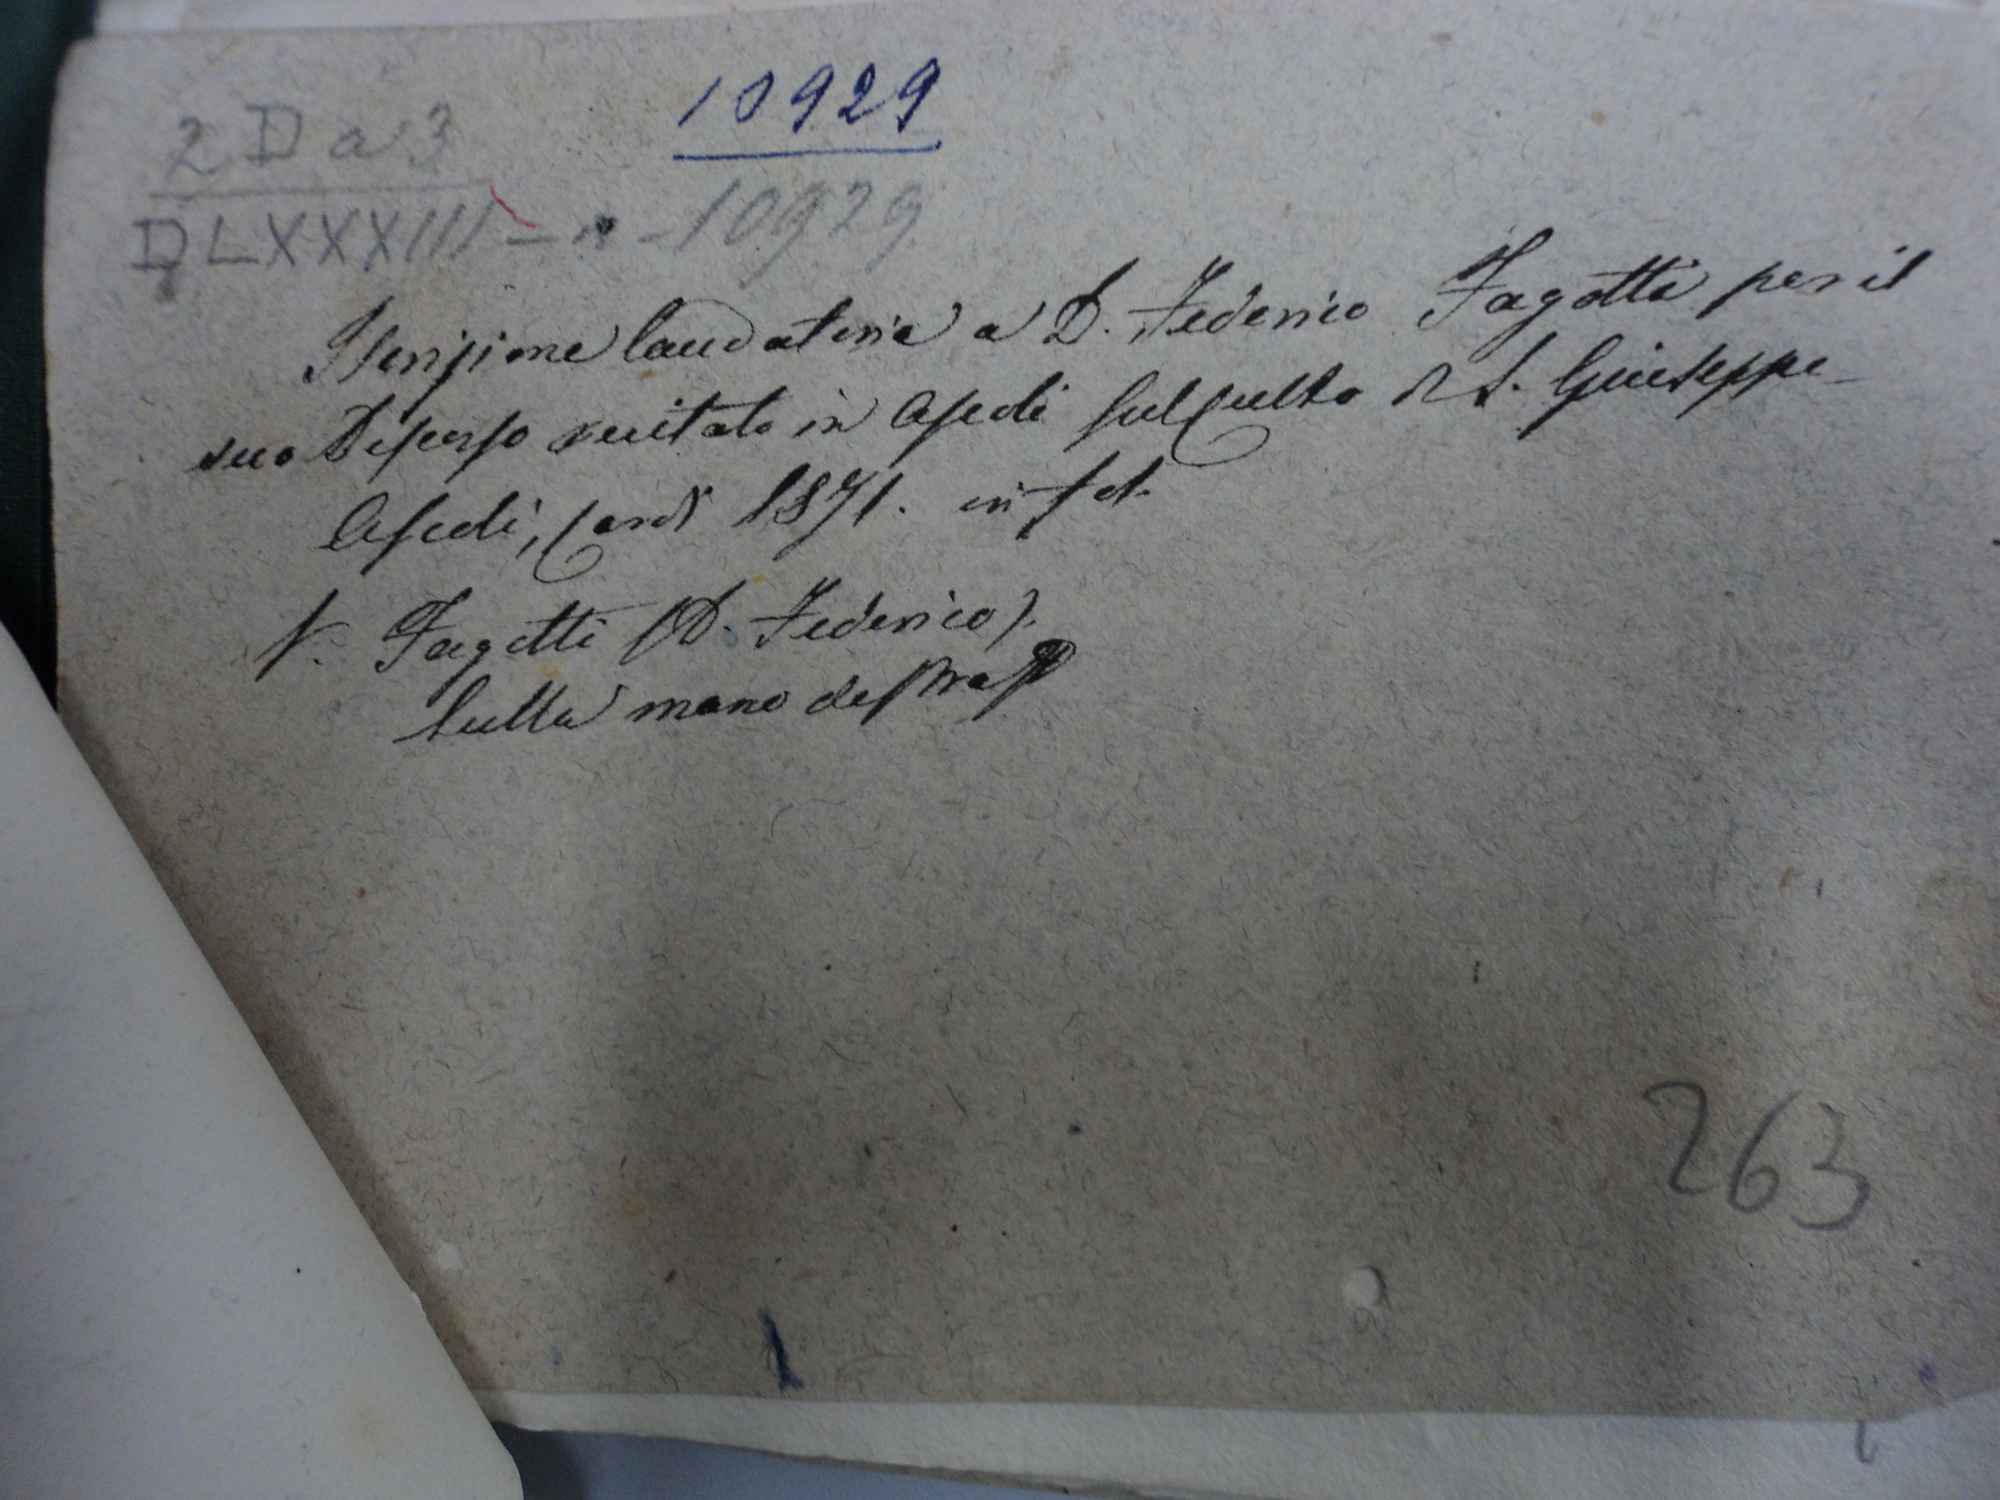 10929
2 D a 3
DLXXXIII - n - 10929
Iscrizione laudatoria a D. Federico Fagotti per il
suo Discorso recitato in Ascoli sul culto di S. Giuseppe
Ascoli, Cardi 1871. in fol.
V. Fagotti (D. Federico).
Sulla mano destra
263